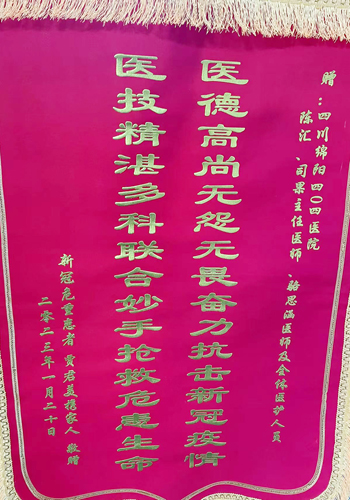 赠：四川绵阳四〇四医院
陈汇、司果主任医师、骆思涵医师及全体医护人员
医德高尚无怨无畏奋力抗击新冠疫情
医技精湛多科联合妙手抢救危重生命
新冠危重患者贾君美携家人敬赠
二零二三年一月二十日